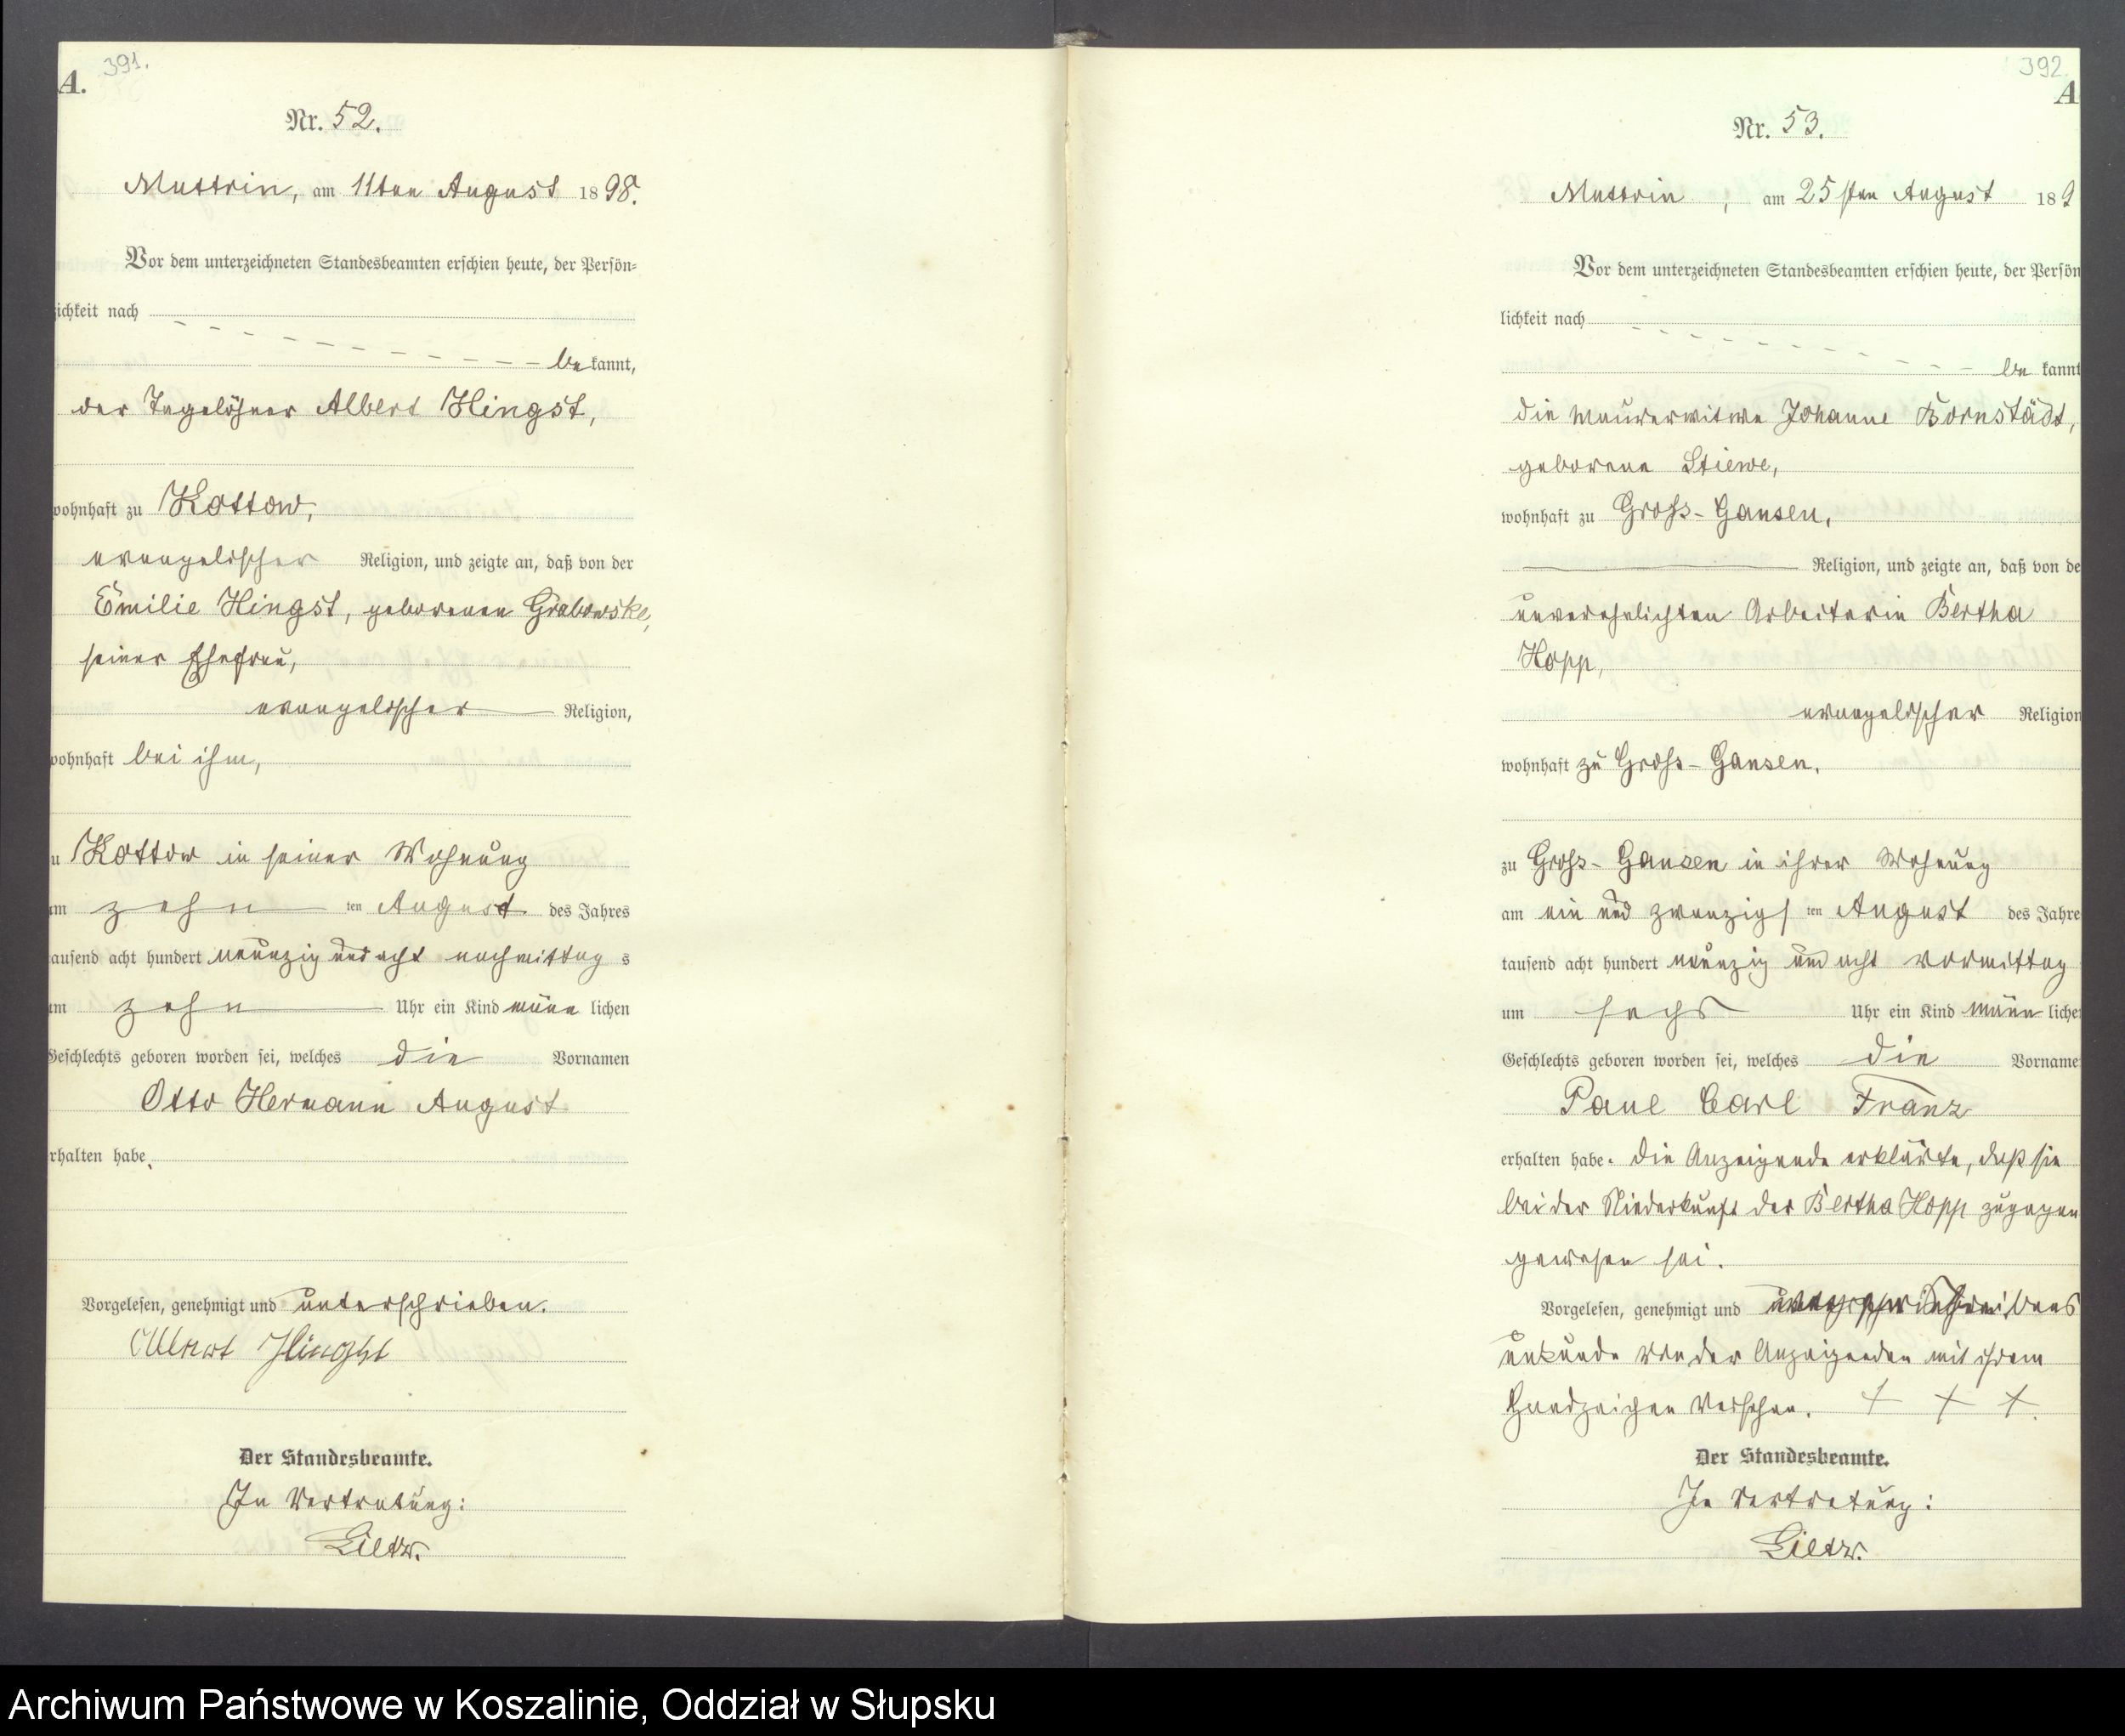 391.
A.
Nr. 52.
Muttrin, am 11ten August 1898.
Vor dem unterzeichneten Standesbeamten erschien heute, der Persön=
lichkeit nach
bekannt,
der Tagelöhner Albert Hingst,
wohnhaft zu Kottow,
evangelischer Religion, und zeigte an, daß von der
Emilie Hingst, geborenen Grabowske,
seiner Ehefrau,
evangelischer Religion,
wohnhaft bei ihm,
u Kottow in seiner Wohnung
am zehn ten August des Jahres
tausend acht hundert neunzig und acht nachmittag s
um zehn Uhr ein Kind männ lichen
Geschlechts geboren worden sei, welches die Vornamen
Otto Hermann August
erhalten habe.
Vorgelesen, genehmigt und unterschrieben.
Albert Hingst
Der Standesbeamte.
In Vertretung:
Lietz.
392.
A
Nr. 53.
Muttrin, am 25sten August 189
Vor dem unterzeichneten Standesbeamten erschien heute, der Persön
lichkeit nach
be kannt
die Maurerwitwe Johanne Bornstädt,
geborene Stiewe,
wohnhaft zu Groß-Gansen,
Religion, und zeigte an, daß von de
unverehelichten Arbeiterin Bertha
Hopp,
evangelischer Religion
wohnhaft zu Groß-Gansen.
zu Groß-Gansen in ihrer Wohnung
am ein und zwanzigs ten August des Jahre
tausend acht hundert neunzig und acht vormittag
um sechs Uhr ein Kind männ liche
Geschlechts geboren worden sei, welches die Vorname
Paul Carl Franz
erhalten habe. Die Anzeigende erklärte, daß sie
bei der Niederkunft der Bertha Hopp zugegen
gewesen sei.
Vorgelesen, genehmigt und
unkunde von der Anzeigenden mit ihrem
Handzeichen versehen. + + +.
Der Standesbeamte.
In Vertretung:
Lietz.
Archiwum Państwowe w Koszalinie, Oddział w Słupsku